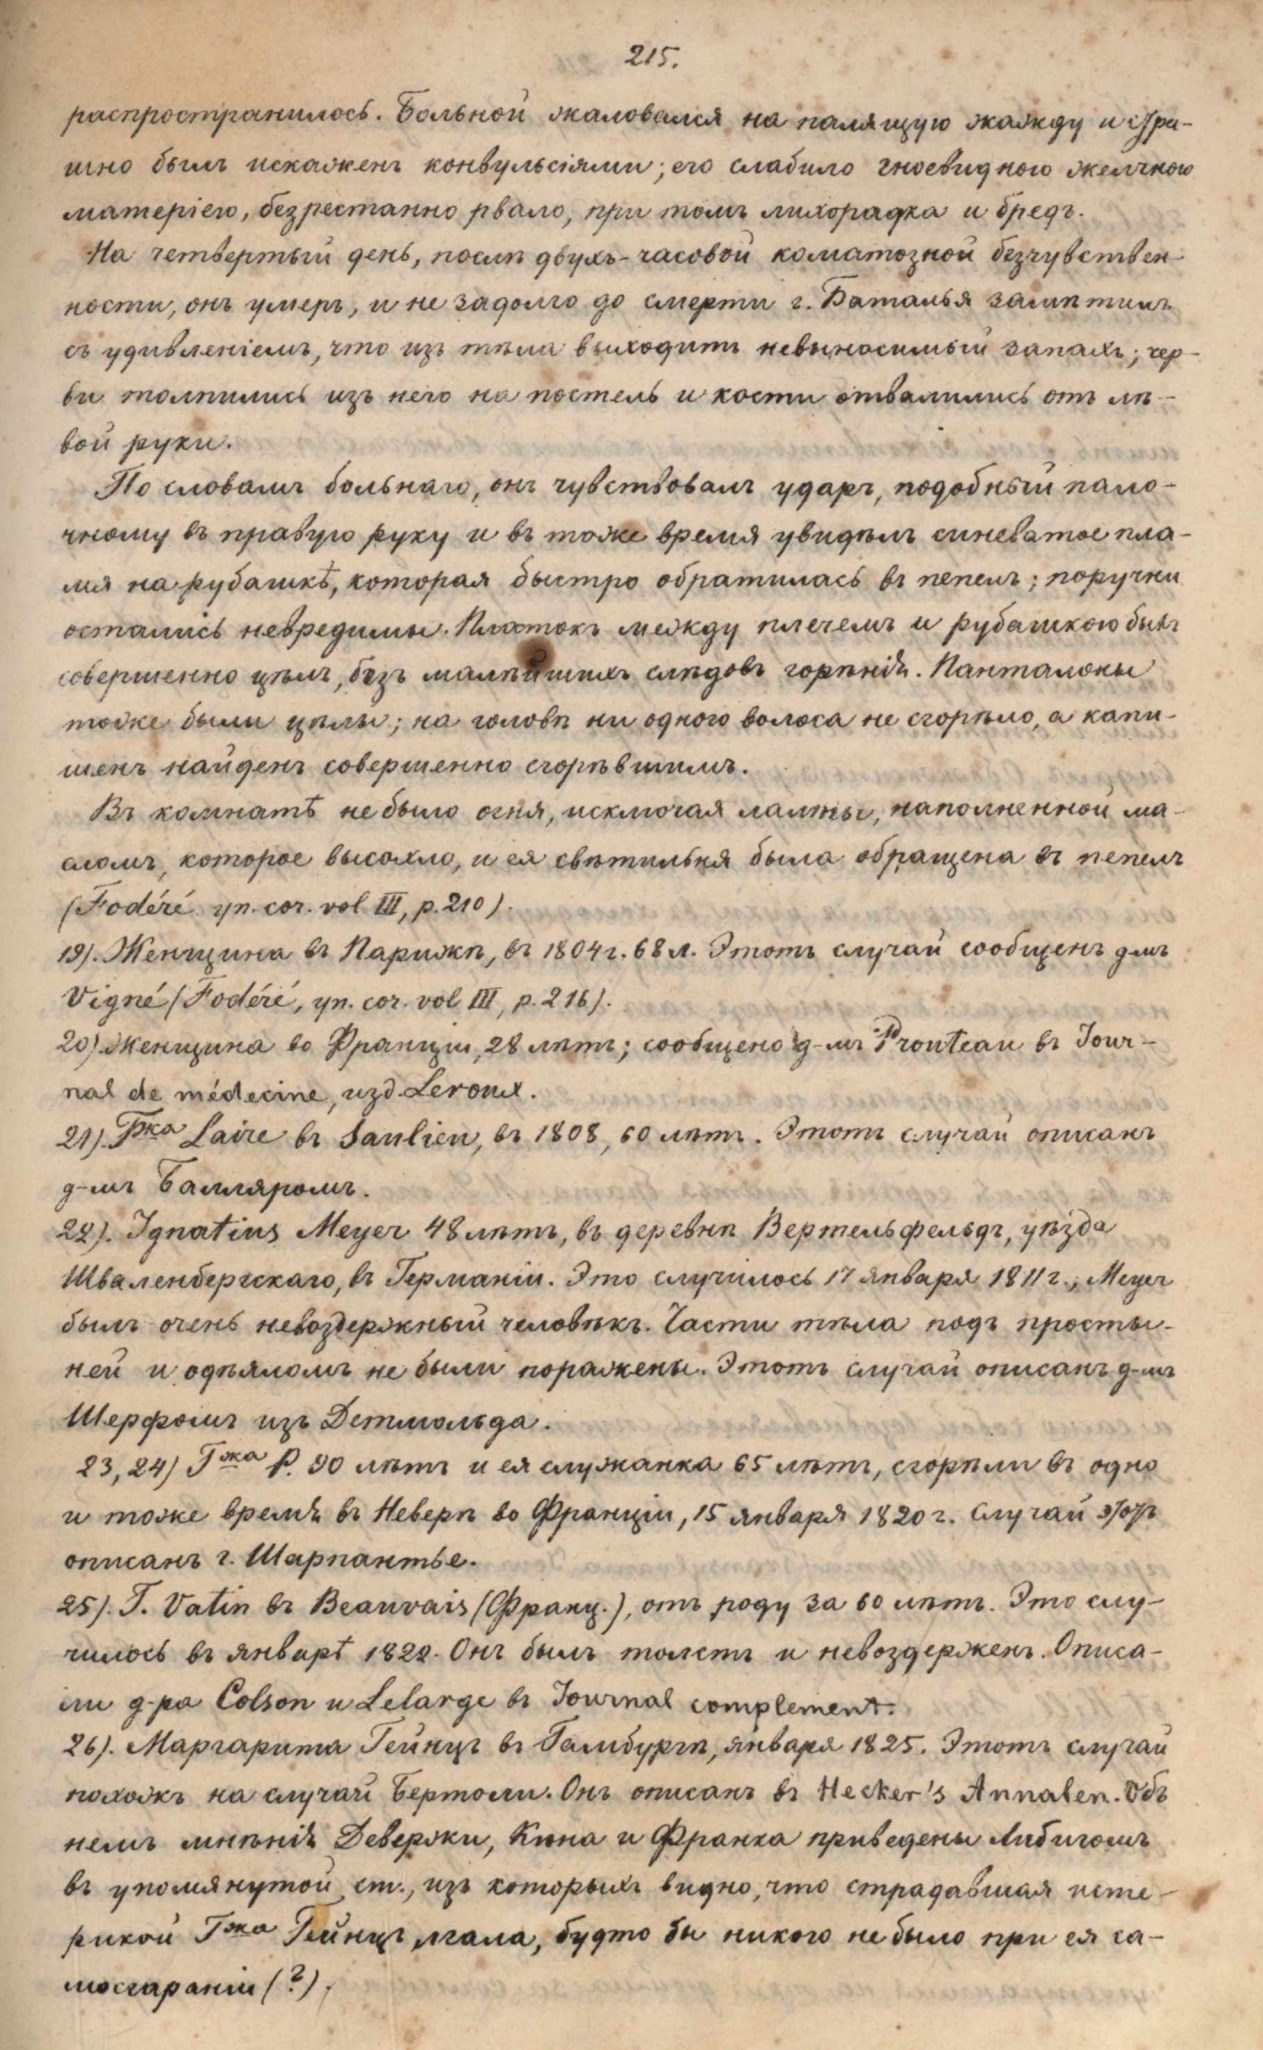 215.
распространилось. Больной жаловался на палящую жажду и стра-
шно былъ искаженъ конвульсіями; его слабило гноевидною желчною
матеріею, безрестанно рвало, при томъ лихорадка и бредъ.
На четвертый день, послѣ двухъ-часовой коматозной безчувствен-
ности, онъ умеръ, и не задолго до смерти г. Баталья замѣтилъ
съ удивленіемъ, что изъ тѣла выходитъ невыносимый запахъ; чер-
ви толпились изъ него на постель и кости отвалились отъ лѣ-
вой руки.
По словамъ больнаго, онъ чувствовалъ ударъ, подобный пало-
чному въ правую руку и въ тоже время увидѣлъ синеватое пла-
мя на рубашкѣ, которая быстро обратилась въ пепелъ; поручни
остались невредимы. Платокъ между плечемъ и рубашкою былъ
совершенно цѣлъ, безъ малѣйшихъ слѣдовъ горѣнія. Панталоны
тоже были цѣлы; на головѣ ни одного волоса не сгорѣло, а капи-
шенъ найденъ совершенно сгорѣвшимъ.
Въ комнатѣ не было огня, исключая лампы, наполненной ма-
сломъ, которое высохло, и ея свѣтильня была обращена въ пепелъ
(Fodéré уп. соч. vol III, p. 210).
19). Женщина въ Парижѣ, въ 1804 г. 68 л. Этотъ случай сообщенъ д-мъ
Vigné (Fodéré, уп. соч. vol III, p. 216).
20). Женщина во Франціи, 28 лѣтъ; сообщено д-мъ Prouteau въ Jour-
nal de médecine, изд. Leroux.
21). Гжа Laire въ Saulieu, въ 1808, 60 лѣтъ. Этотъ случай описанъ
д-мъ Балляромъ.
22). Ignatius Meyer 48 лѣтъ, въ деревнѣ Вертельфельдъ, уѣзда
Шваленбергскаго, въ Германіи. Это случилось 17 января 1811 г., Meyer
былъ очень невоздержный человѣкъ. Части тѣла подъ просты-
ней и одѣяломъ не были поражены. Этотъ случай описанъ д-мъ
Шерфомъ изъ Детмольда.
23, 24) Гжа Р. 90 лѣтъ и ея служанка 65 лѣтъ, сгорѣли въ одно
и тоже время въ Неверѣ во Франціи, 15 января 1820 г. Случай этотъ
описанъ г. Шарпантье.
25). Г. Vatin въ Beauvais (Франц.), отъ роду за 60 лѣтъ. Это слу-
чилось въ январѣ 1822. Онъ былъ толстъ и невоздерженъ. Описа-
ли д-ра Colson и Lelarge въ Journal complement.
26). Маргарита Гейнцъ въ Гамбургѣ, января 1825. Этотъ случай
похожъ на случай Бертоли. Онъ описанъ въ Hecker's Annalen. Объ
немъ мнѣнія Девержи, Кина и Франка приведены Либигомъ
въ упомянутой ст., изъ которыхъ видно, что страдавшая исте-
рикой Гжа Гейнцъ лгала, будто бы никого не было при ея са-
мосгараніи (?).